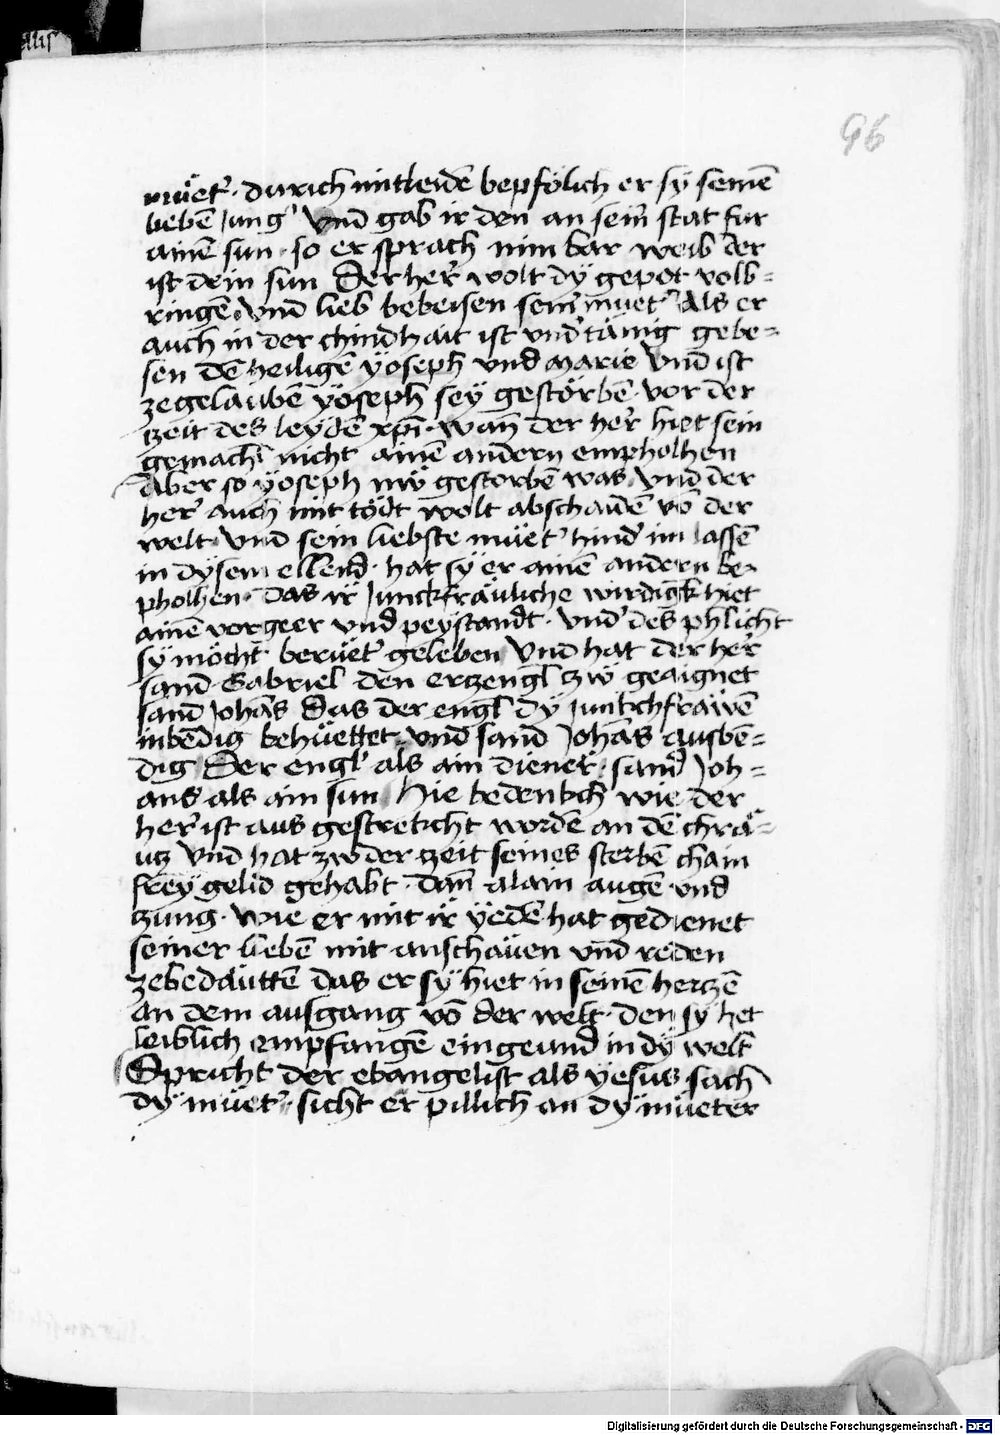 96
müet̕ · durich mitleidē bepfölich er sÿ seinē
liebē Jung̕ Vnd gab ir den an sein̄ stat fur
ainē sun · so er sprach nim bar weib der
ist dein sun Der her̕ wolt dÿ gepot volb=
ringē Vnd lieb bebeisen sein̕ müet̕ Als er
auch in der chindhait ist vnd̕tänig gebe=
sen dē heiligē Yöseph vnd Marie Vnd ist
zegelaubē yöseph seÿ gestörbē · vor der
tzeit des leÿdē xp̄i · wan̄ der her̕ hiet sein
gemach̕ nicht ainē andern empholhen
Aber so ÿoseph nw̄ gestorbē was Vnd der
her̕ auch mit tödt wolt abschaidē vō der
welt · Vnd sein liebste müet̕ hind̕ im lassē
in dÿsem ellend · hat sÿ er ainē andern be-
pholhen · Das ir Junckfräuliche wirdigk̄ hiet
ainē vorgeer vnd peÿstandt · vnd̕ des phlicht
sÿ möcht berüet̕ geleben Vnd hat der her̕
sand Gabriel den ertzengl zw geaignet
sand Johās Das der engl dÿ Junkchfrawē
inbēdig behüettet · vnd sand Johās ausbē=
dig Der engl̕ als ain diener̕ · sand Joh=
ans als ain sun Hie bedenkch wie der
her̕ ist aus gestrekcht wordē an dē chrä=
utz Vnd hat zw der tzeit seines sterbē chain
freÿ gelid gehabt · dan̄ alain augē vnd
tzung · wie er mit ir ÿedē hat gedienet
seiner liebē mit anschauen vnd reden
zebedäuttē das er sÿ hiet in seinē hertzē
an dem ausgang vō der welt · den sÿ het
leiblich empfangē eingeund in dÿ welt
Spricht der ebangelist als ÿesus sach
dÿ müet̕ · sicht er pillich an dÿ müeter
Digitalisierung gefördert durch die Deutsche Forschungsgemeinschaft - DFG